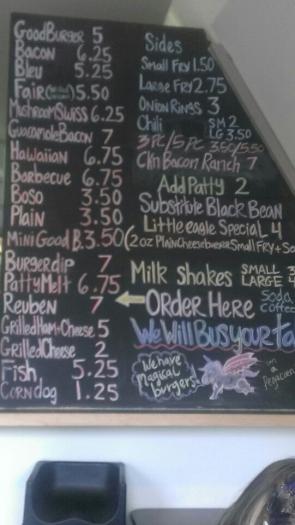 GoodBurger 5
Bacon 6.25
Bleu 5.25
Fair 5.50
Mushroom Swiss 6.25
Guacamole Bacon 7
Hawaiian 6.75
Barbecue 6.75
Boso 3.50
Plain 3.50
Mini Good B. 3.50
Burger dip 7
Patty Melt 6.75
Reuben 7
Grilled Ham + Cheese 5
Grilled Cheese 2
Fish 5.25
Corn dog 1.25
Sides
Small Fry 1.50
Large Fry 2.75
Onion Rings 3
Chili SM 2
LG 3.50
3 PC/5 PC 3.50/5.50
Ckn Bacon Ranch 7
Add Patty 2
Substitute Black Bean
Little eagle Special 4
(2 oz Plain Cheeseburger Small Fry + So
Milk Shakes SMALL 3
LARGE 4
Order Here
Soda
Coffee
We Will Bus your Ta
We have
Magical
burgers
im
a
Pegacorn